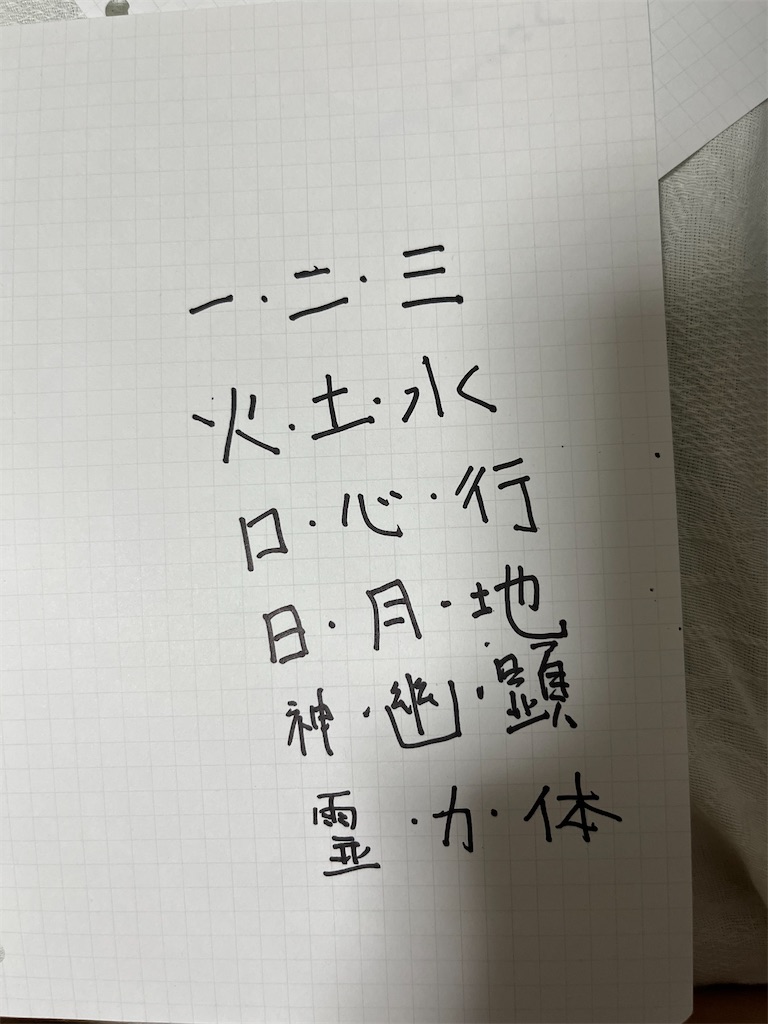 一・二・三
火・土・水
口・心・行
日・月・地
神・幽・顕
霊・力・体